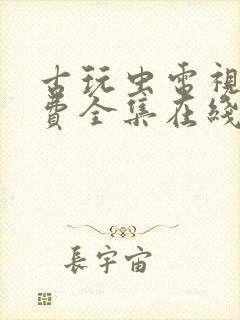 古玩虫電視
費全集在綫
長宇宙